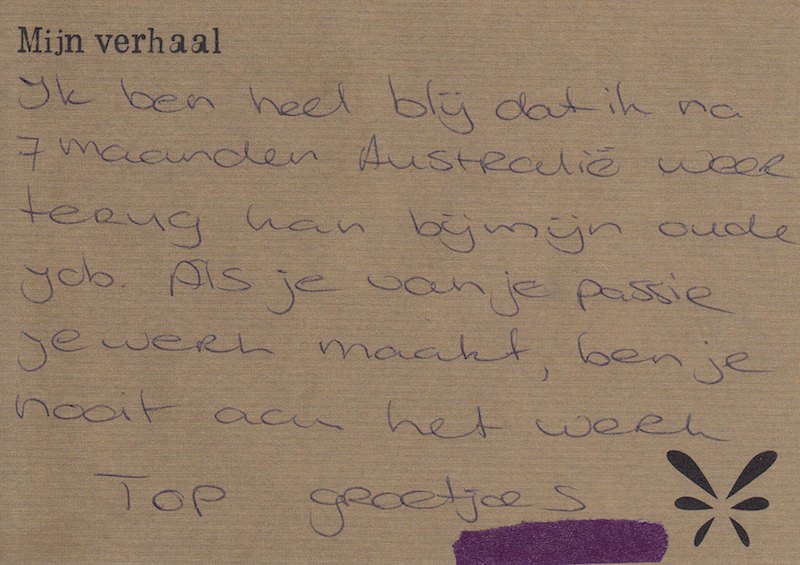 Mijn verhaal
Ik ben heel blij dat ik na
7 maanden Australië weer
terug kan bij mijn oude
job. Als je van je passie
je werk maakt, ben je
nooit aan het werk
Top groetjes